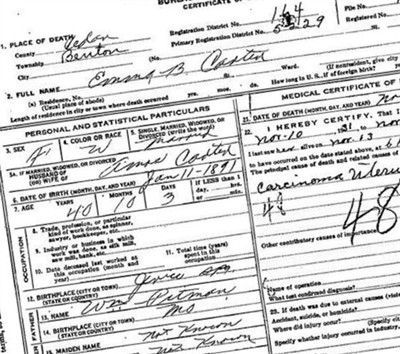 CERTIFICATE OF
1. PLACE OF DEATH
County Cedar
Registration District No. 164
File No.
Township Benton
Primary Registration District No. 5229
Registered No.
City
No.
2. FULL NAME Emma B Carter
(a) Residence, No.
(Usual place of abode)
(If nonresident, give city
Length of residence in city or town where death occurred yrs. mos. ds. How long in U. S., if of foreign birth?
PERSONAL AND STATISTICAL PARTICULARS
MEDICAL CERTIFICATE OF
3. SEX F
4. COLOR OR RACE W
5. SINGLE, MARRIED, WIDOWED, OR DIVORCED (write the word) Married
5A. IF MARRIED, WIDOWED, OR DIVORCED
HUSBAND OF
(OR) WIFE OF Amos Carter
6. DATE OF BIRTH (MONTH, DAY, AND YEAR) Jan 11-1891
7. AGE YEARS 40 MONTHS 10 DAYS 3 If LESS than 1
OCCUPATION
8. Trade, profession, or particular
kind of work done, as spinner,
sawyer, bookkeeper, etc.
9. Industry or business in which
work was done, as silk mill,
saw mill, bank, etc.
10. Date deceased last worked at
this occupation (month and
year)
11. Total time (years)
spent in this
occupation
12. BIRTHPLACE (CITY OR TOWN)
(STATE OR COUNTRY)
FATHER
13. NAME Wm Pitman
14. BIRTHPLACE (CITY OR TOWN) Mo
(STATE OR COUNTRY)
15. MAIDEN NAME Not Known
Not Known
21. DATE OF DEATH (MONTH, DAY, AND YEAR)
22. I HEREBY CERTIFY, That I
Nov 10 31
I last saw her alive on Nov 13
to have occurred on the date stated above, at
The principal cause of death and related causes of
Carcinoma Uterus
48
48
Other contributory causes of importance:
Name of operation
What test confirmed diagnosis?
23. If death was due to external causes
Accident, suicide, or homicide?
Where did injury occur?
Specify whether injury occurred in industry,